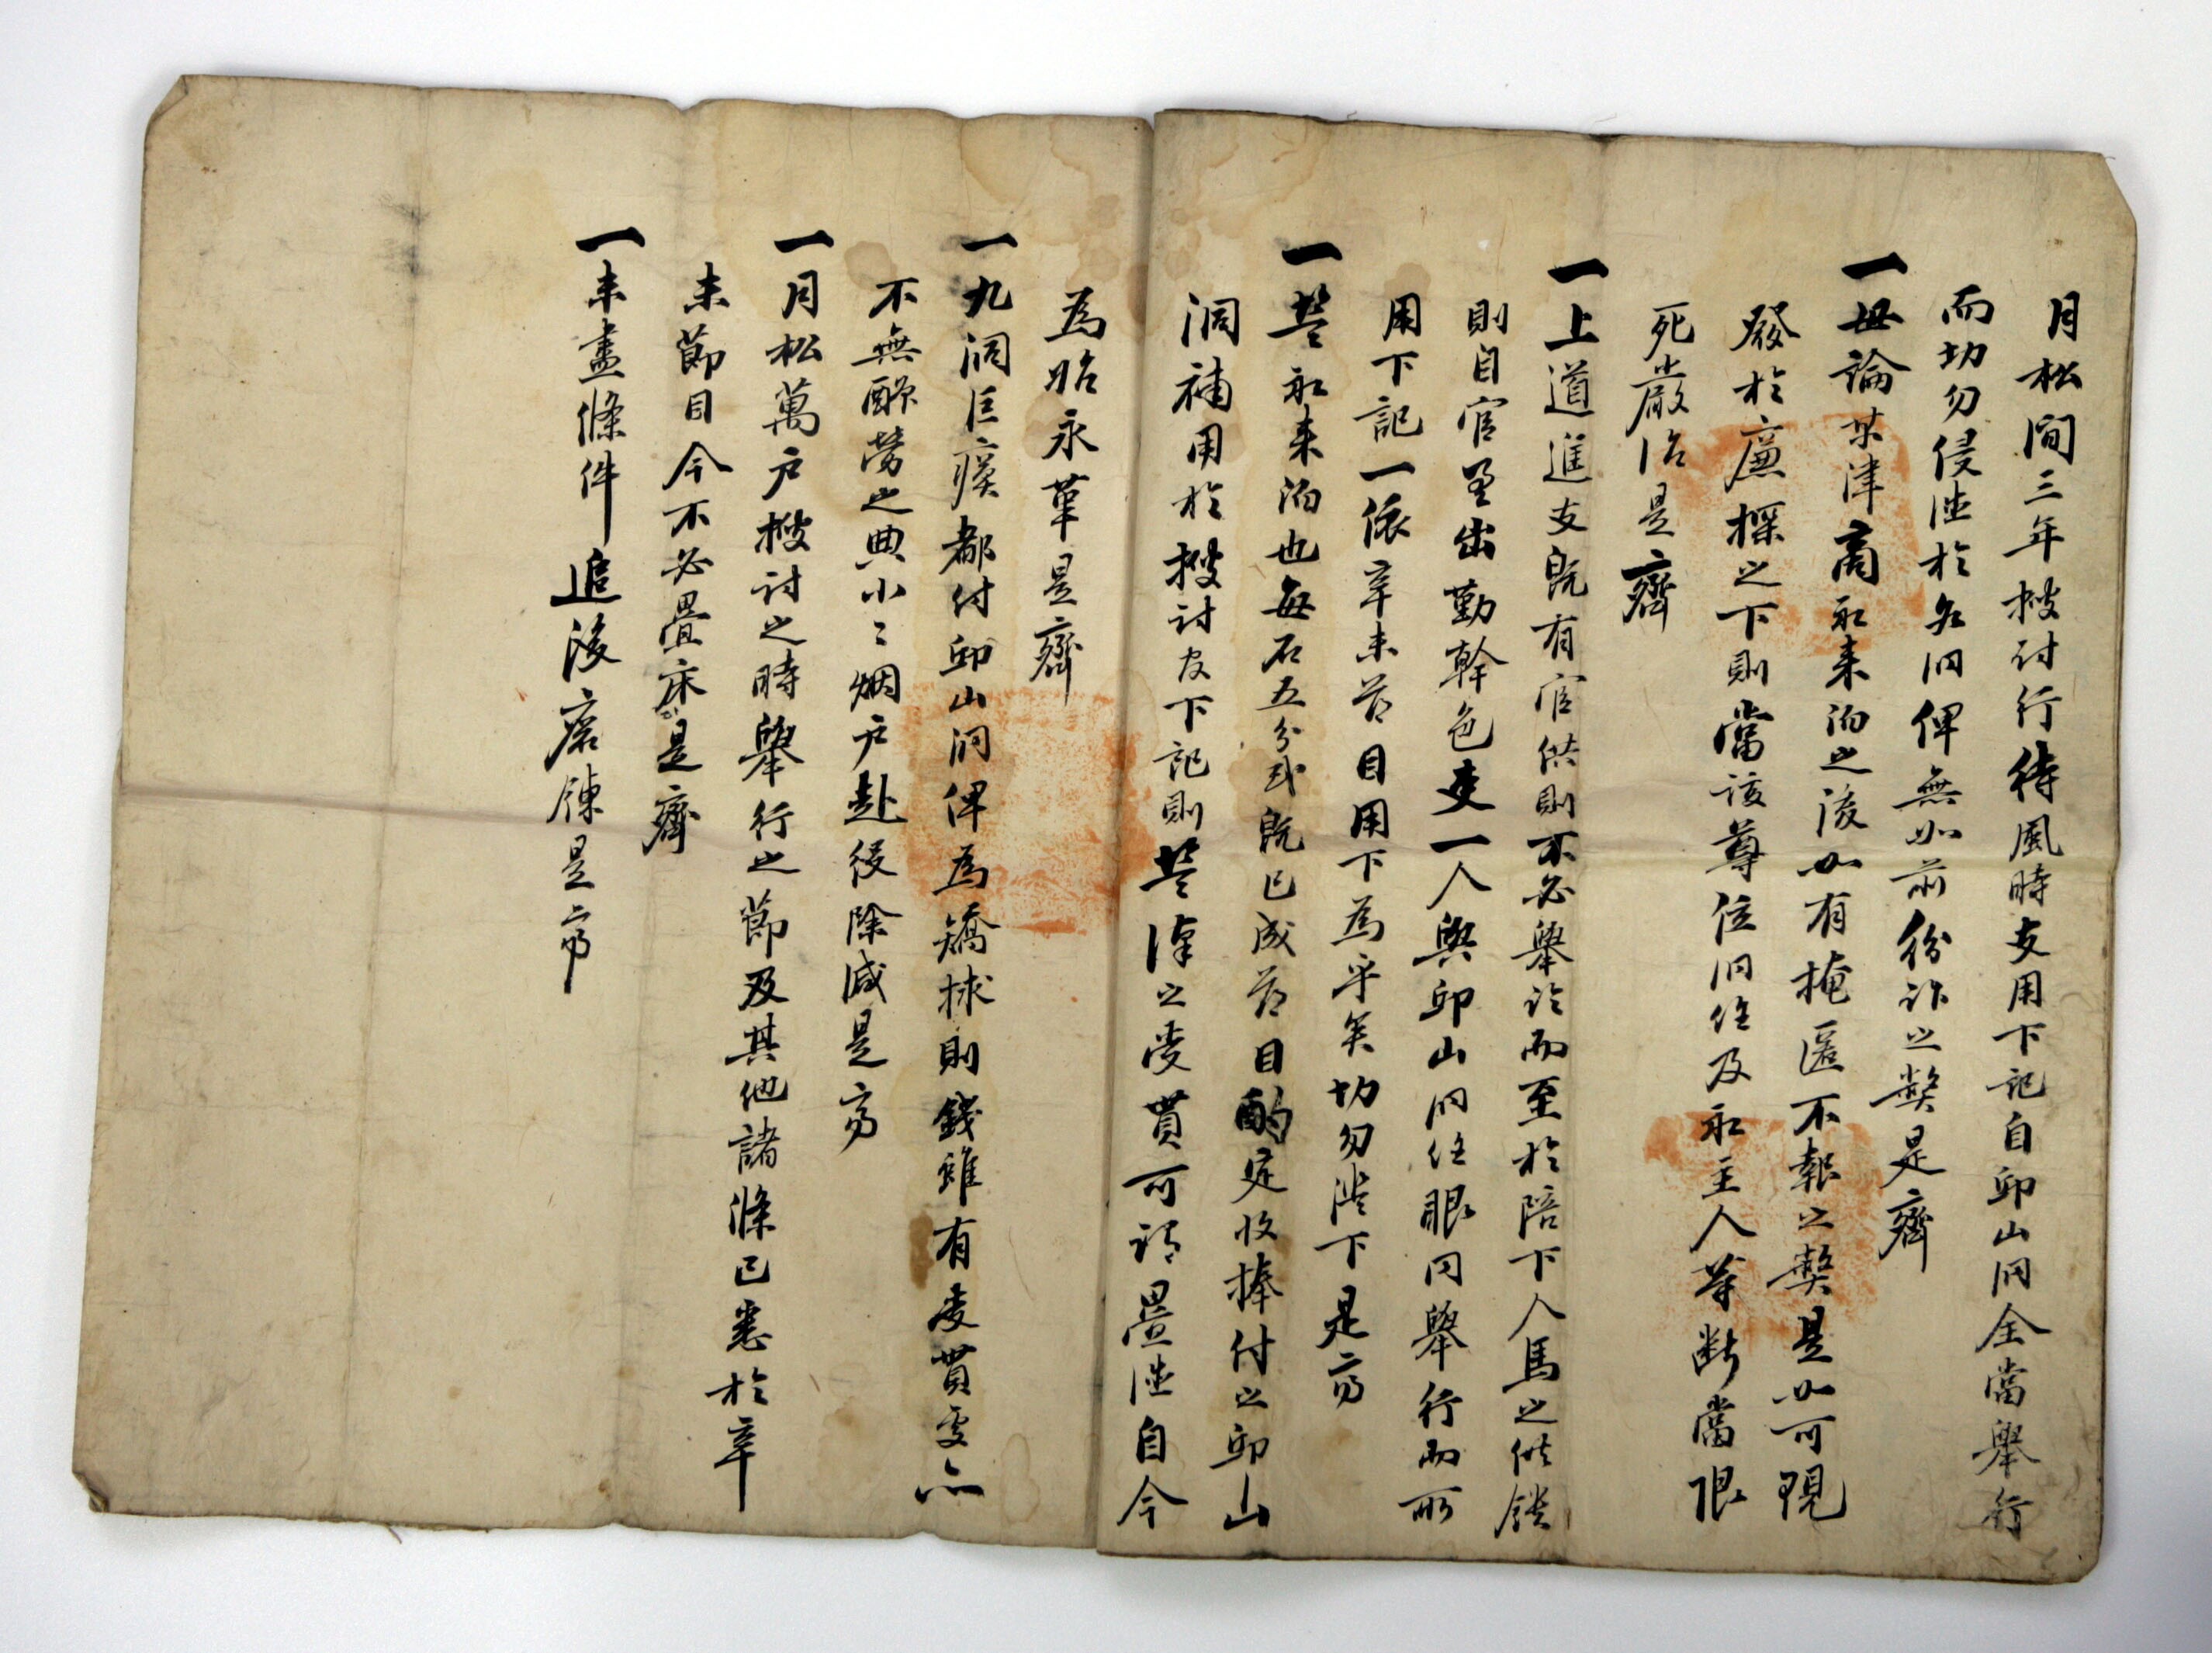 月松間三年搜討行待風時支用下記自卯山洞全當擧行
而切勿侵徵於各洞俾無如前紛詐之弊是齊
一毋論某津商船來泊之後如有掩匿不報之弊是如可現
發於廉探之下則當該尊位洞任及船主人等斷當限
死嚴治是齊
一上道進支旣有官供則不必擧論而至於陪下人馬之供饋
則自官另出勤幹色吏一人與卯山洞任眼同擧行而所
用下記一依辛未節目用下爲乎矣切勿濫下是齊
一船來泊也每石五分式旣已成節目酌定收捧付之卯山
洞補用於搜討支下記則之受貰可謂疊徵自今
爲始永革是齊
一九洞巨瘼都付卯山洞俾爲矯捄則錢雖有受貰處亦
不無酬勞之典小小烟戶赴役除減是齊
一月松萬戶搜討之時擧行之節及其他諸條已悉於辛
未節目今不必疊床是齊
一未盡條件追後磨鍊是齊